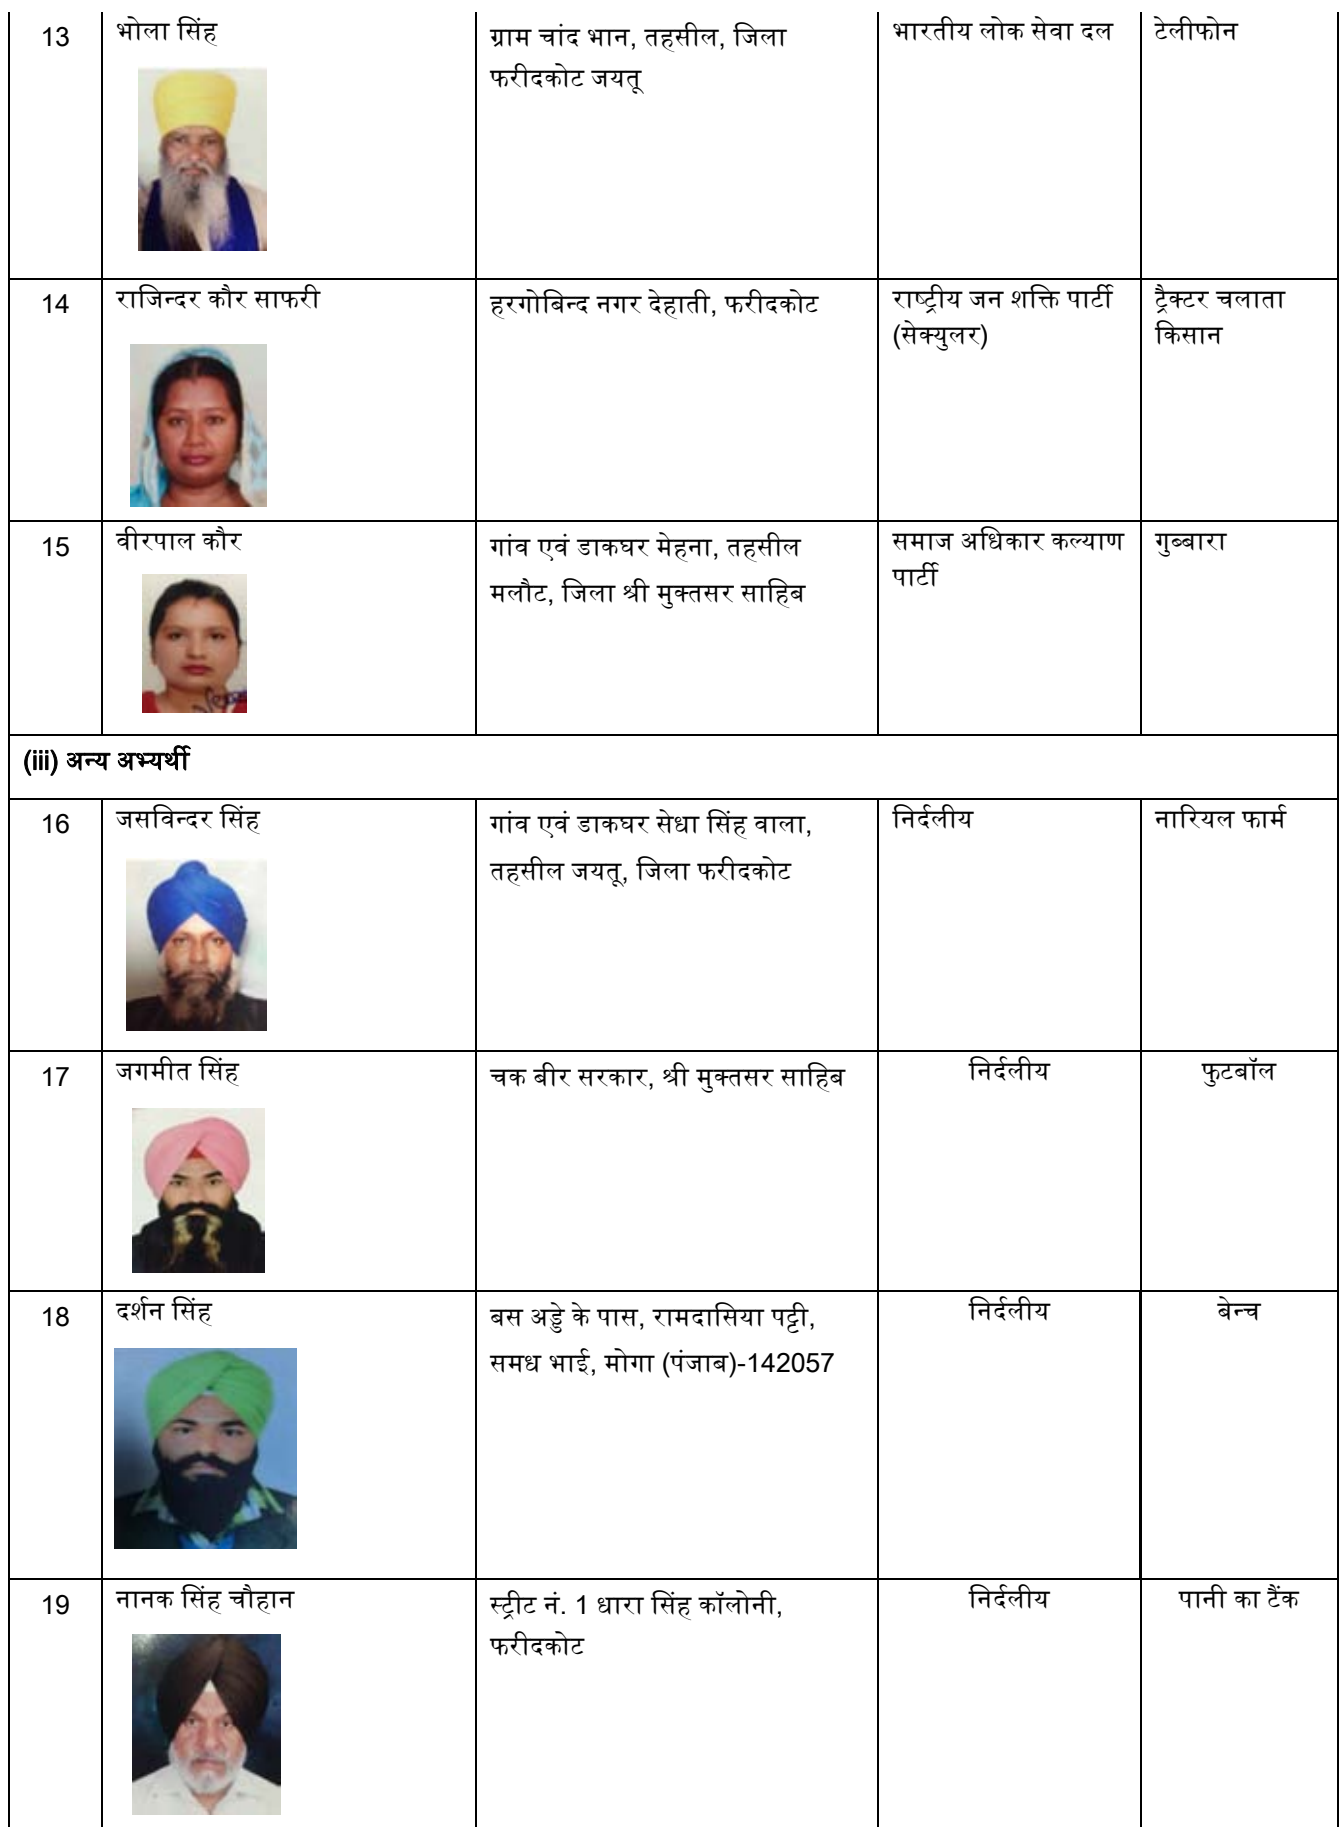 13
भोला सिंह
ग्राम चांद भान, तहसील, जिला
फरीदकोट जयतू
भारतीय लोक सेवा दल
टेलीफोन
14
राजिन्दर कौर साफरी
हरगोबिन्द नगर देहाती, फरीदकोट
राष्ट्रीय जन शक्ति पार्टी
(सेक्युलर)
ट्रैक्टर चलाता
किसान
15
वीरपाल कौर
गांव एवं डाकघर मेहना, तहसील
मलौट, जिला श्री मुक्तसर साहिब
समाज अधिकार कल्याण
पार्टी
गुब्बारा
(iii) अन्य अभ्यर्थी
16
जसविन्दर सिंह
गांव एवं डाकघर सेधा सिंह वाला,
तहसील जयतू, जिला फरीदकोट
निर्दलीय
नारियल फार्म
17
जगमीत सिंह
चक बीर सरकार, श्री मुक्तसर साहिब
निर्दलीय
फुटबॉल
18
दर्शन सिंह
बस अड्डे के पास, रामदासिया पट्टी,
समध भाई, मोगा (पंजाब)-142057
निर्दलीय
बेन्च
19
नानक सिंह चौहान
स्ट्रीट नं. 1 धारा सिंह कॉलोनी,
फरीदकोट
निर्दलीय
पानी का टैंक